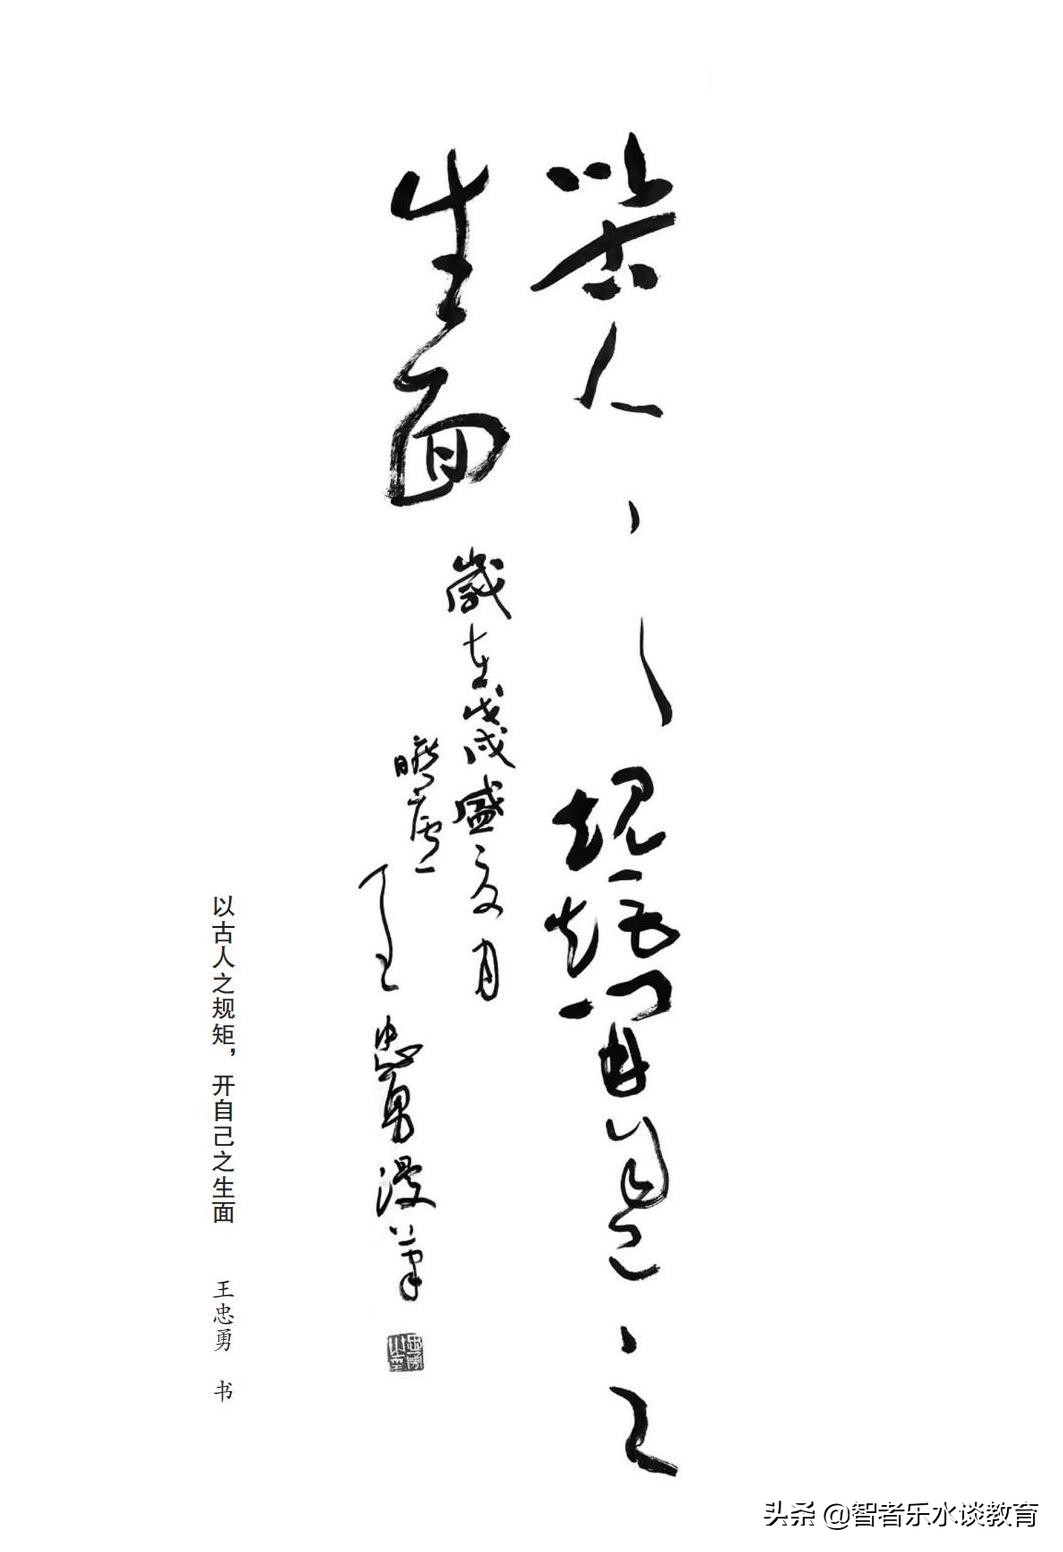 以古人之規矩開自己之
生面
歲在戊戌盛夏月
王忠勇漫筆
忠勇之印
以古人之规矩，开自己之生面 王忠勇 书
头条 @智者乐水谈教育